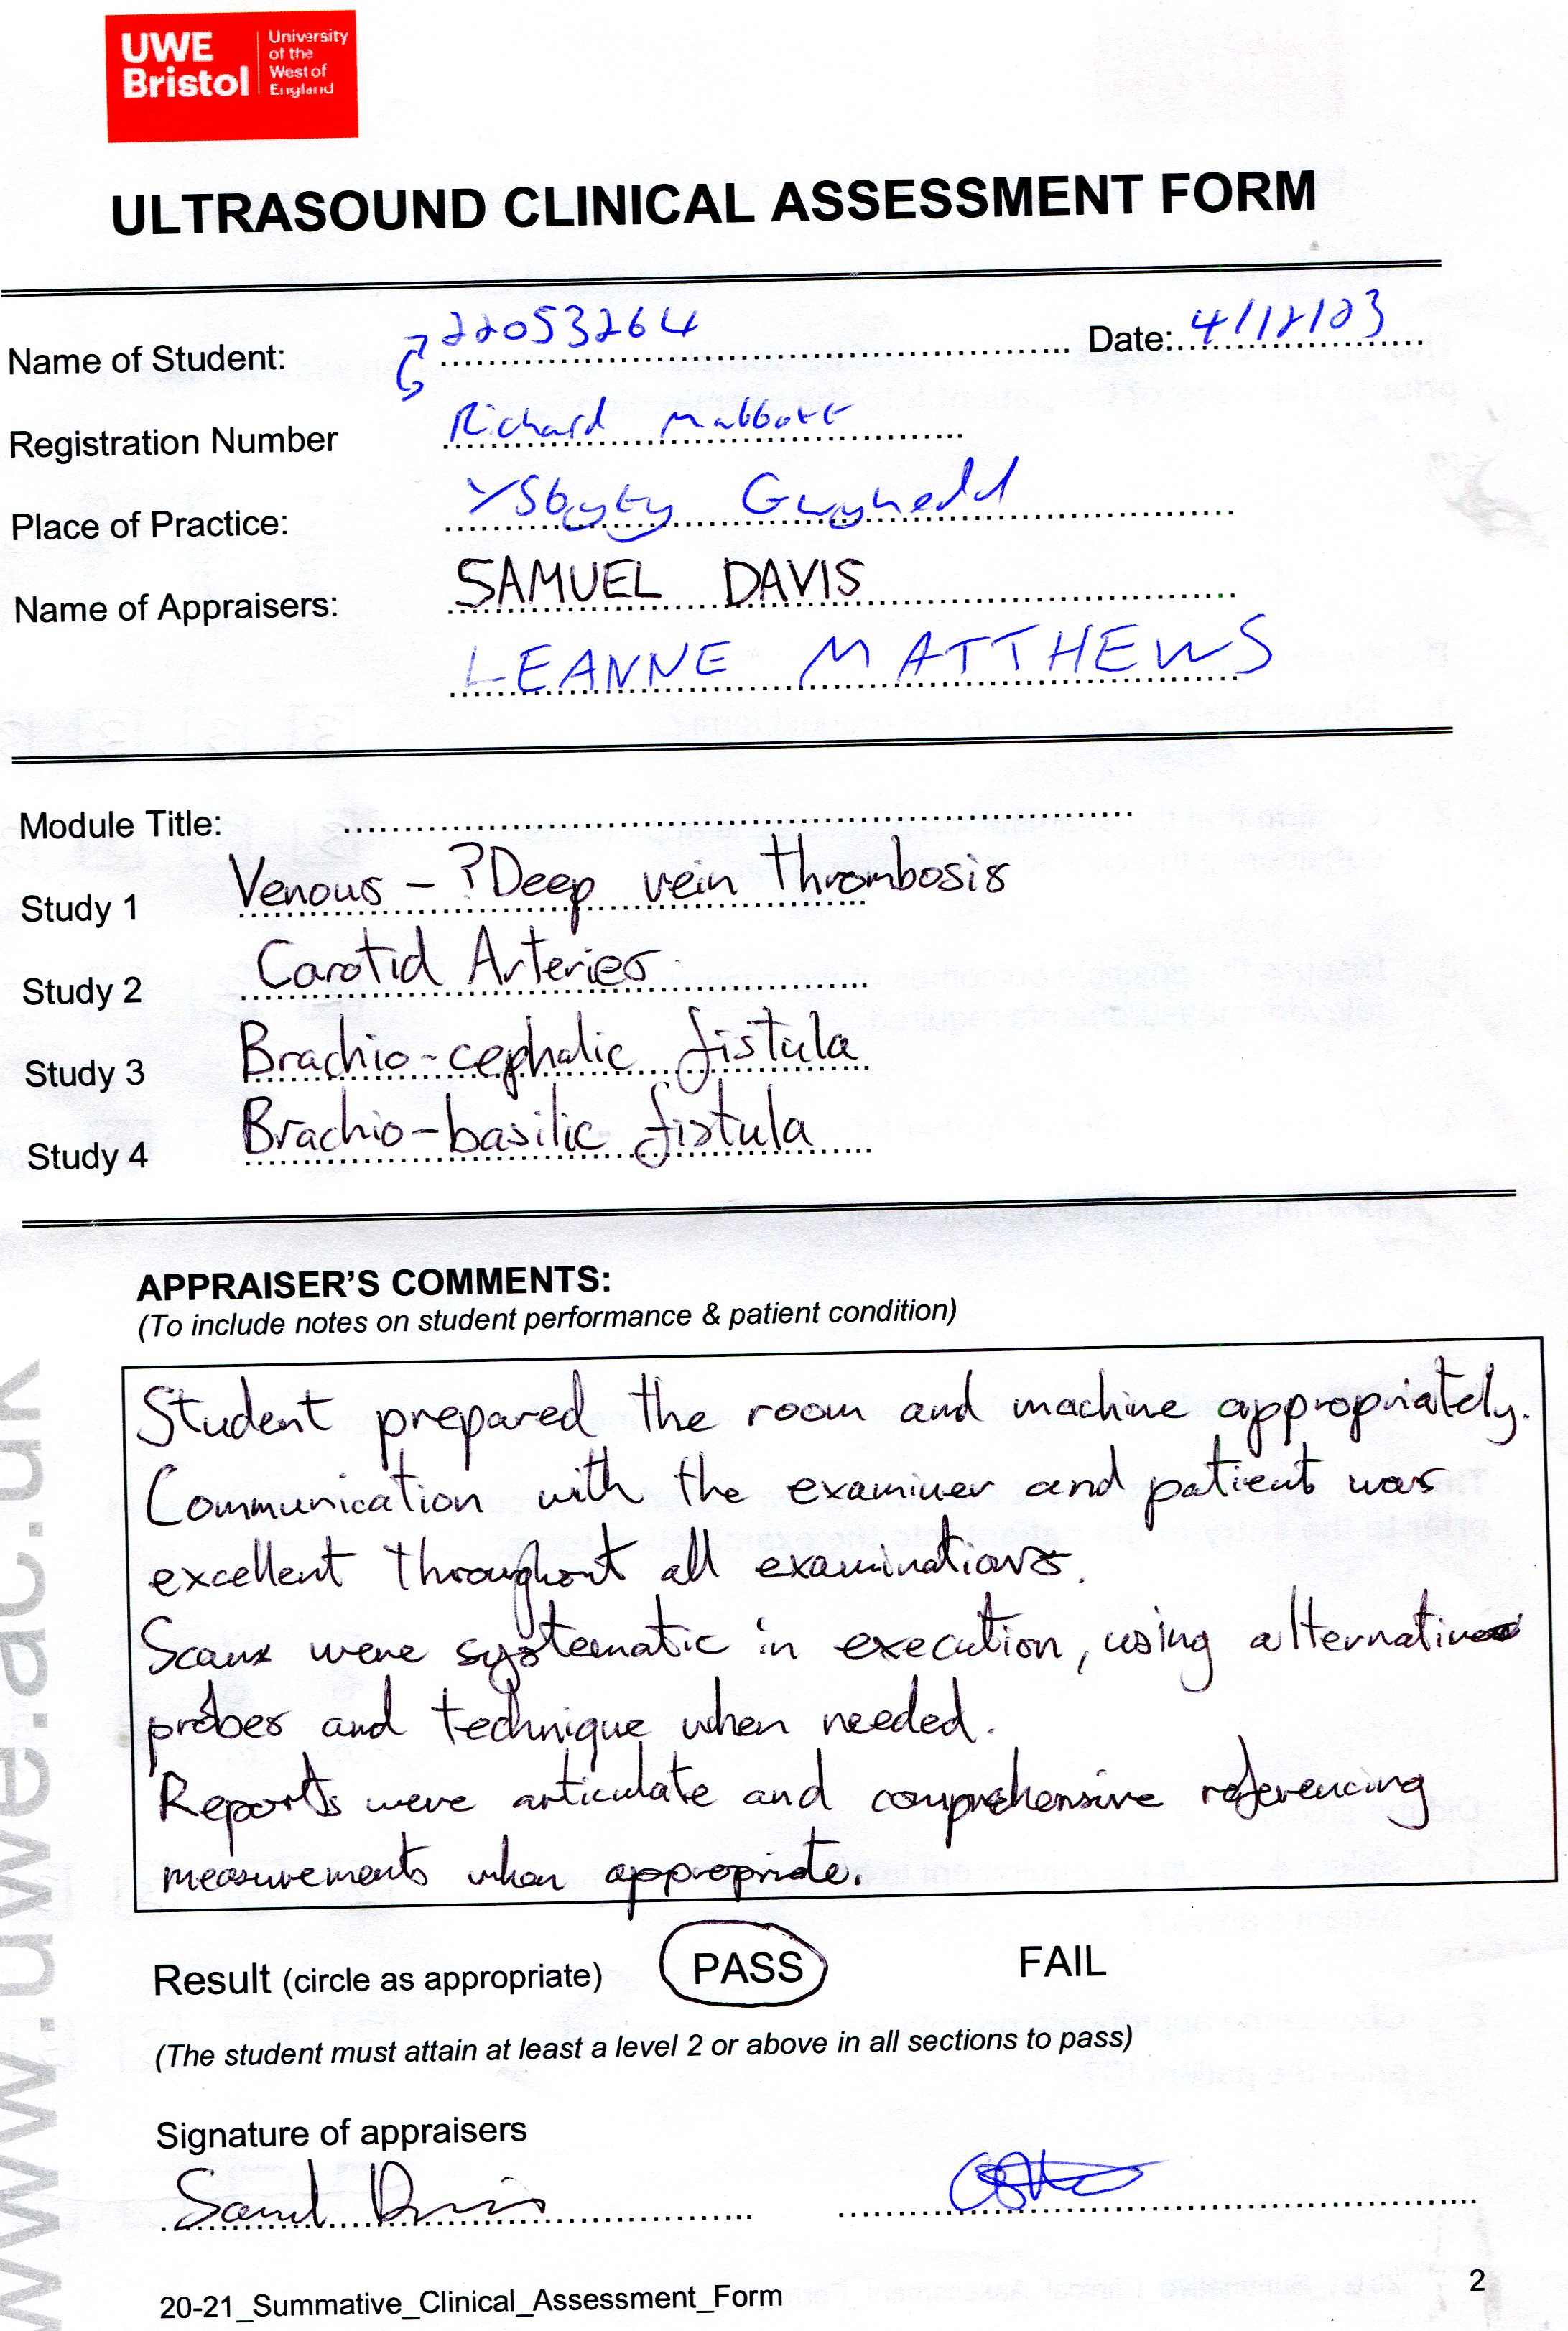 UWE Bristol
University of the West of England
ULTRASOUND CLINICAL ASSESSMENT FORM
Name of Student: 22053264 Date: 4/12/23
Registration Number Richard Mabbott
Place of Practice: Ysbyty Gwynedd
Name of Appraisers: SAMUEL DAVIS
LEANNE MATTHEWS
Module Title:
Study 1 Venous - ?Deep vein thrombosis
Study 2 Carotid Arteries
Study 3 Brachio-cephalic fistula
Study 4 Brachio-basilic fistula
APPRAISER'S COMMENTS:
(To include notes on student performance & patient condition)
Student prepared the room and machine appropriately.
Communication with the examiner and patient was
excellent throughout all examinations.
Scans were systematic in execution, using alternative
probes and technique when needed.
Reports were articulate and comprehensive referencing
measurements when appropriate.
Result (circle as appropriate) PASS FAIL
(The student must attain at least a level 2 or above in all sections to pass)
Signature of appraisers
Samuel Davis
20-21_Summative_Clinical_Assessment_Form 2
www.uwe.ac.uk